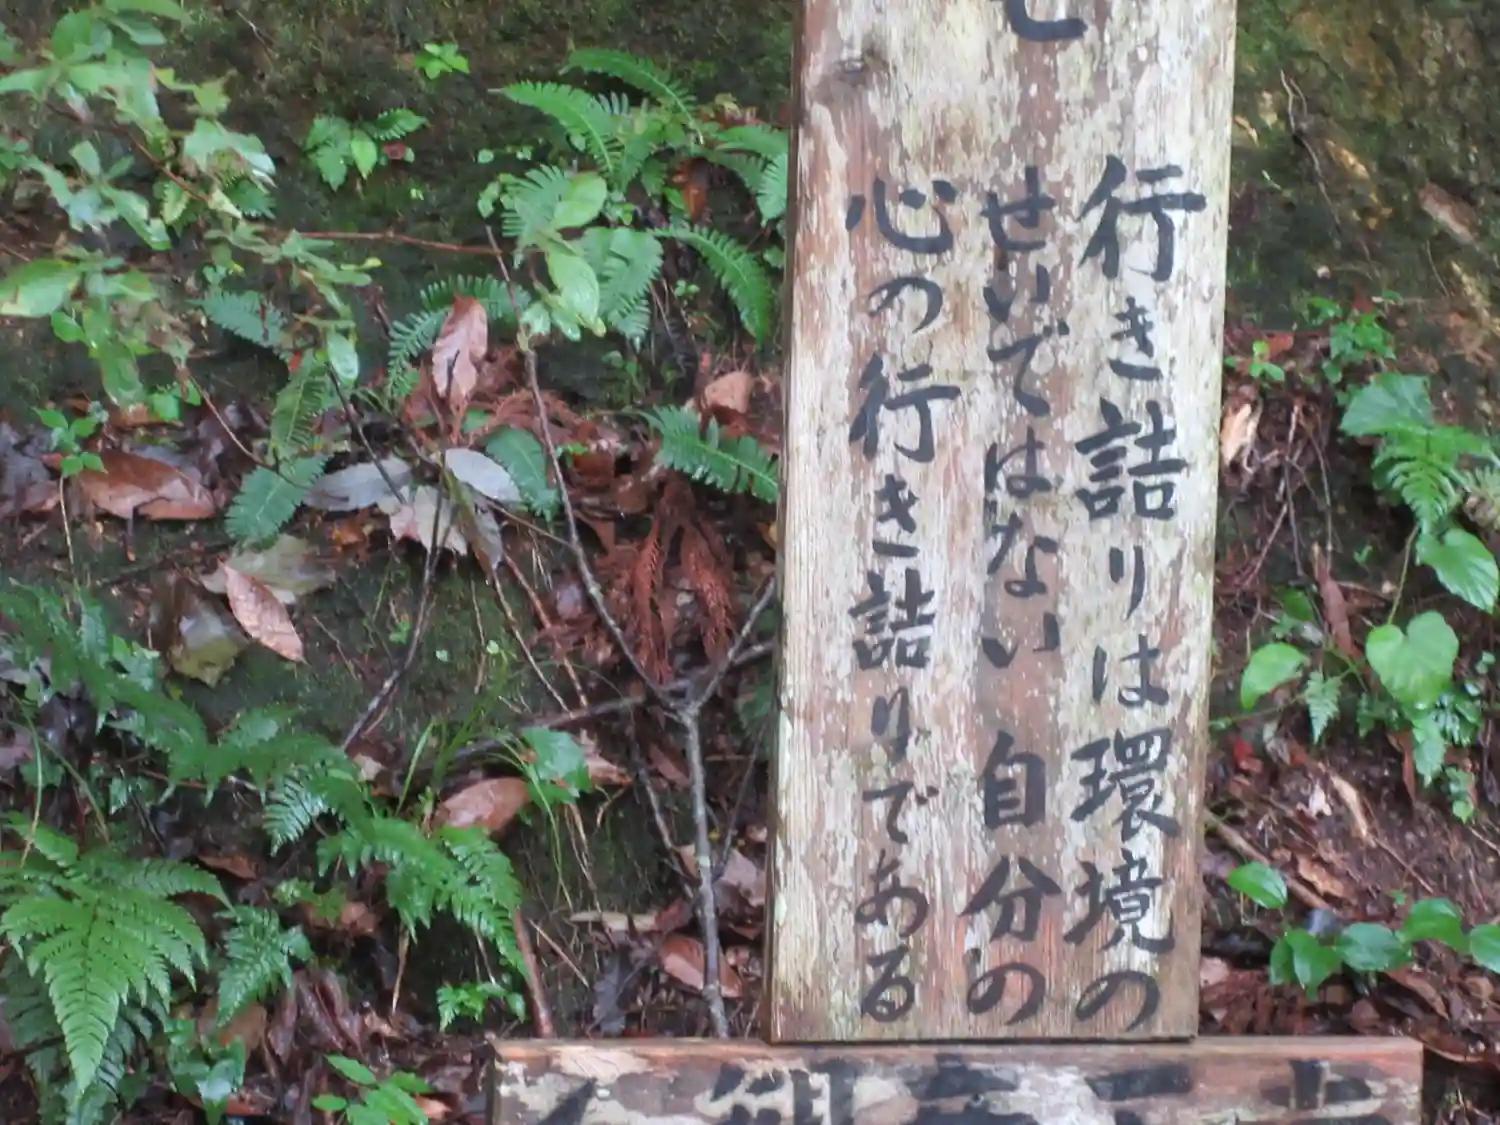 行き詰りは環境の
せいではない自分の
心の行き詰りである